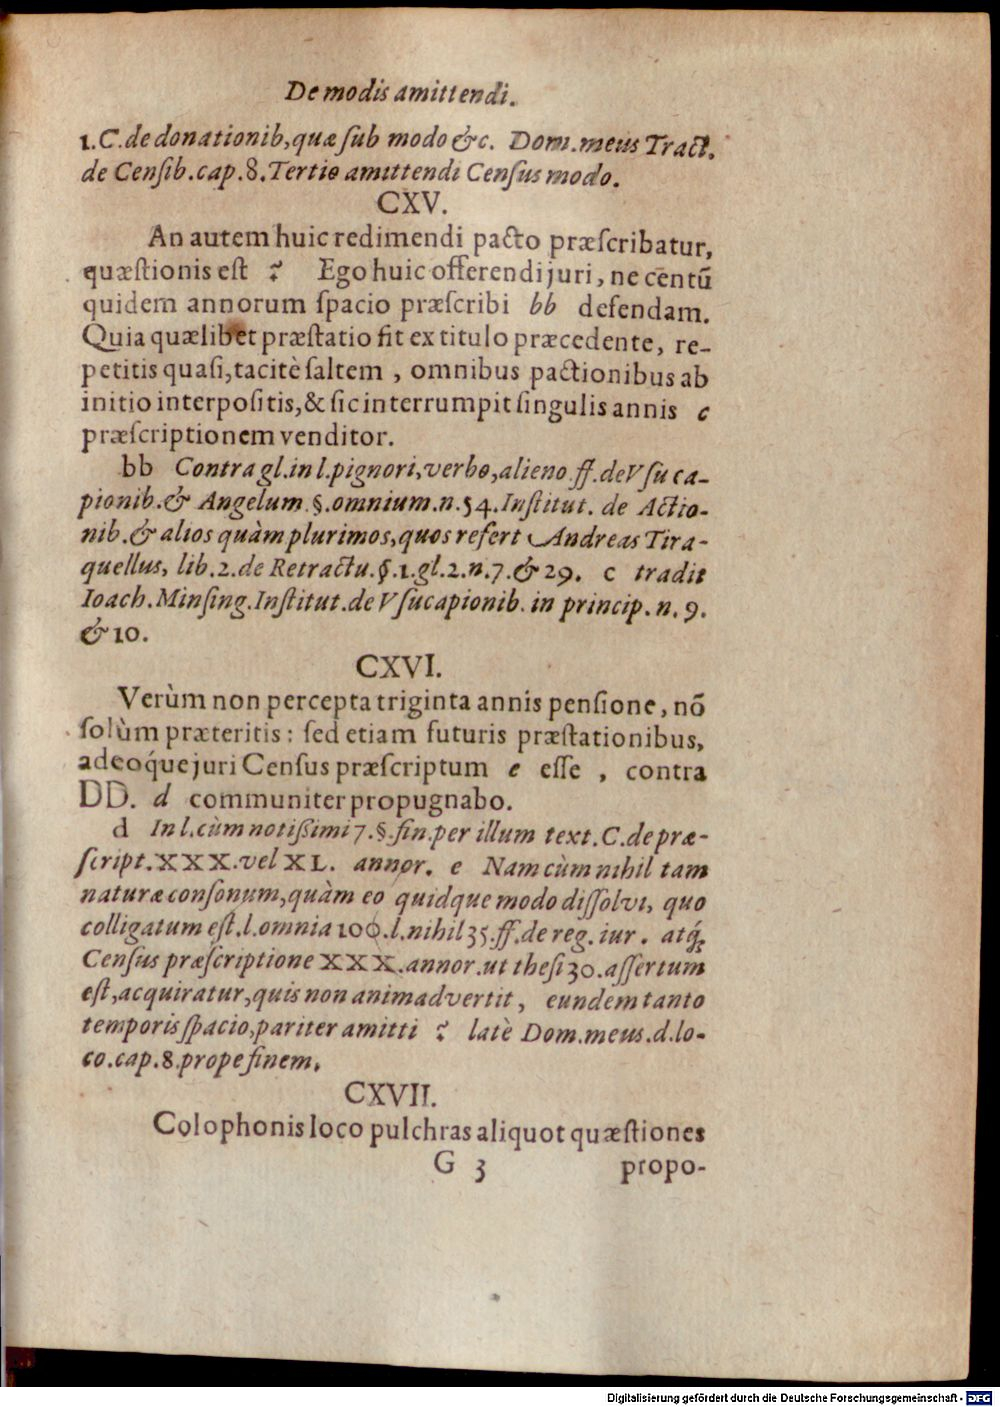 De modis amittendi.
1. C. de donationib, quæ ſub modo &c. Dom. meus Tract.
de Cenſib. cap. 8. Tertio amittendi Cenſus modo.
CXV.
An autem huic redimendi pacto præſcribatur,
quæſtionis eſt ? Ego huic offerendi juri, ne centū
quidem annorum ſpacio præſcribi bb defendam.
Quia quælibet præſtatio fit ex titulo præcedente, re-
petitis quaſi, tacitè ſaltem , omnibus pactionibus ab
initio interpoſitis, & ſic interrumpit ſingulis annis c
præſcriptionem venditor.
bb Contra gl. in l. pignori, verbo, alieno ff. de Vſuca-
pionib. & Angelum §. omnium. n. 54. Inſtitut. de Actio-
nib. & alios quàm plurimos, quos refert Andreas Tira-
quellus, lib. 2. de Retractu. §. 1. gl. 2. n. 7. & 29. c tradit
Ioach. Minſing. Inſtitut. de Vſucapionib. in princip. n. 9.
& 10.
CXVI.
Verùm non percepta triginta annis penſione, nō
ſolùm præteritis : ſed etiam futuris præſtationibus,
adeoq́ue juri Cenſus præſcriptum e eſſe , contra
DD. d communiter propugnabo.
d In l. cùm notiſſimi 7. §. fin. per illum text. C. de præ-
ſcript. XXX. vel XL. annor. e Nam cùm nihil tam
naturæ conſonum, quàm eo quidque modo diſſolvi, quo
colligatum eſt. l. omnia 100. l. nihil 35. ff. de reg. iur. atq́;
Cenſus præſcriptione XXX. annor. ut theſi 30. aſſertum
eſt, acquiratur, quis non animadvertit, eundem tanto
temporis ſpacio, pariter amitti ? latè Dom. meus. d. lo-
co. cap. 8. prope finem.
CXVII.
Colophonis loco pulchras aliquot quæſtiones
G 3 propo-
Digitalisierung gefördert durch die Deutsche Forschungsgemeinschaft - DFG